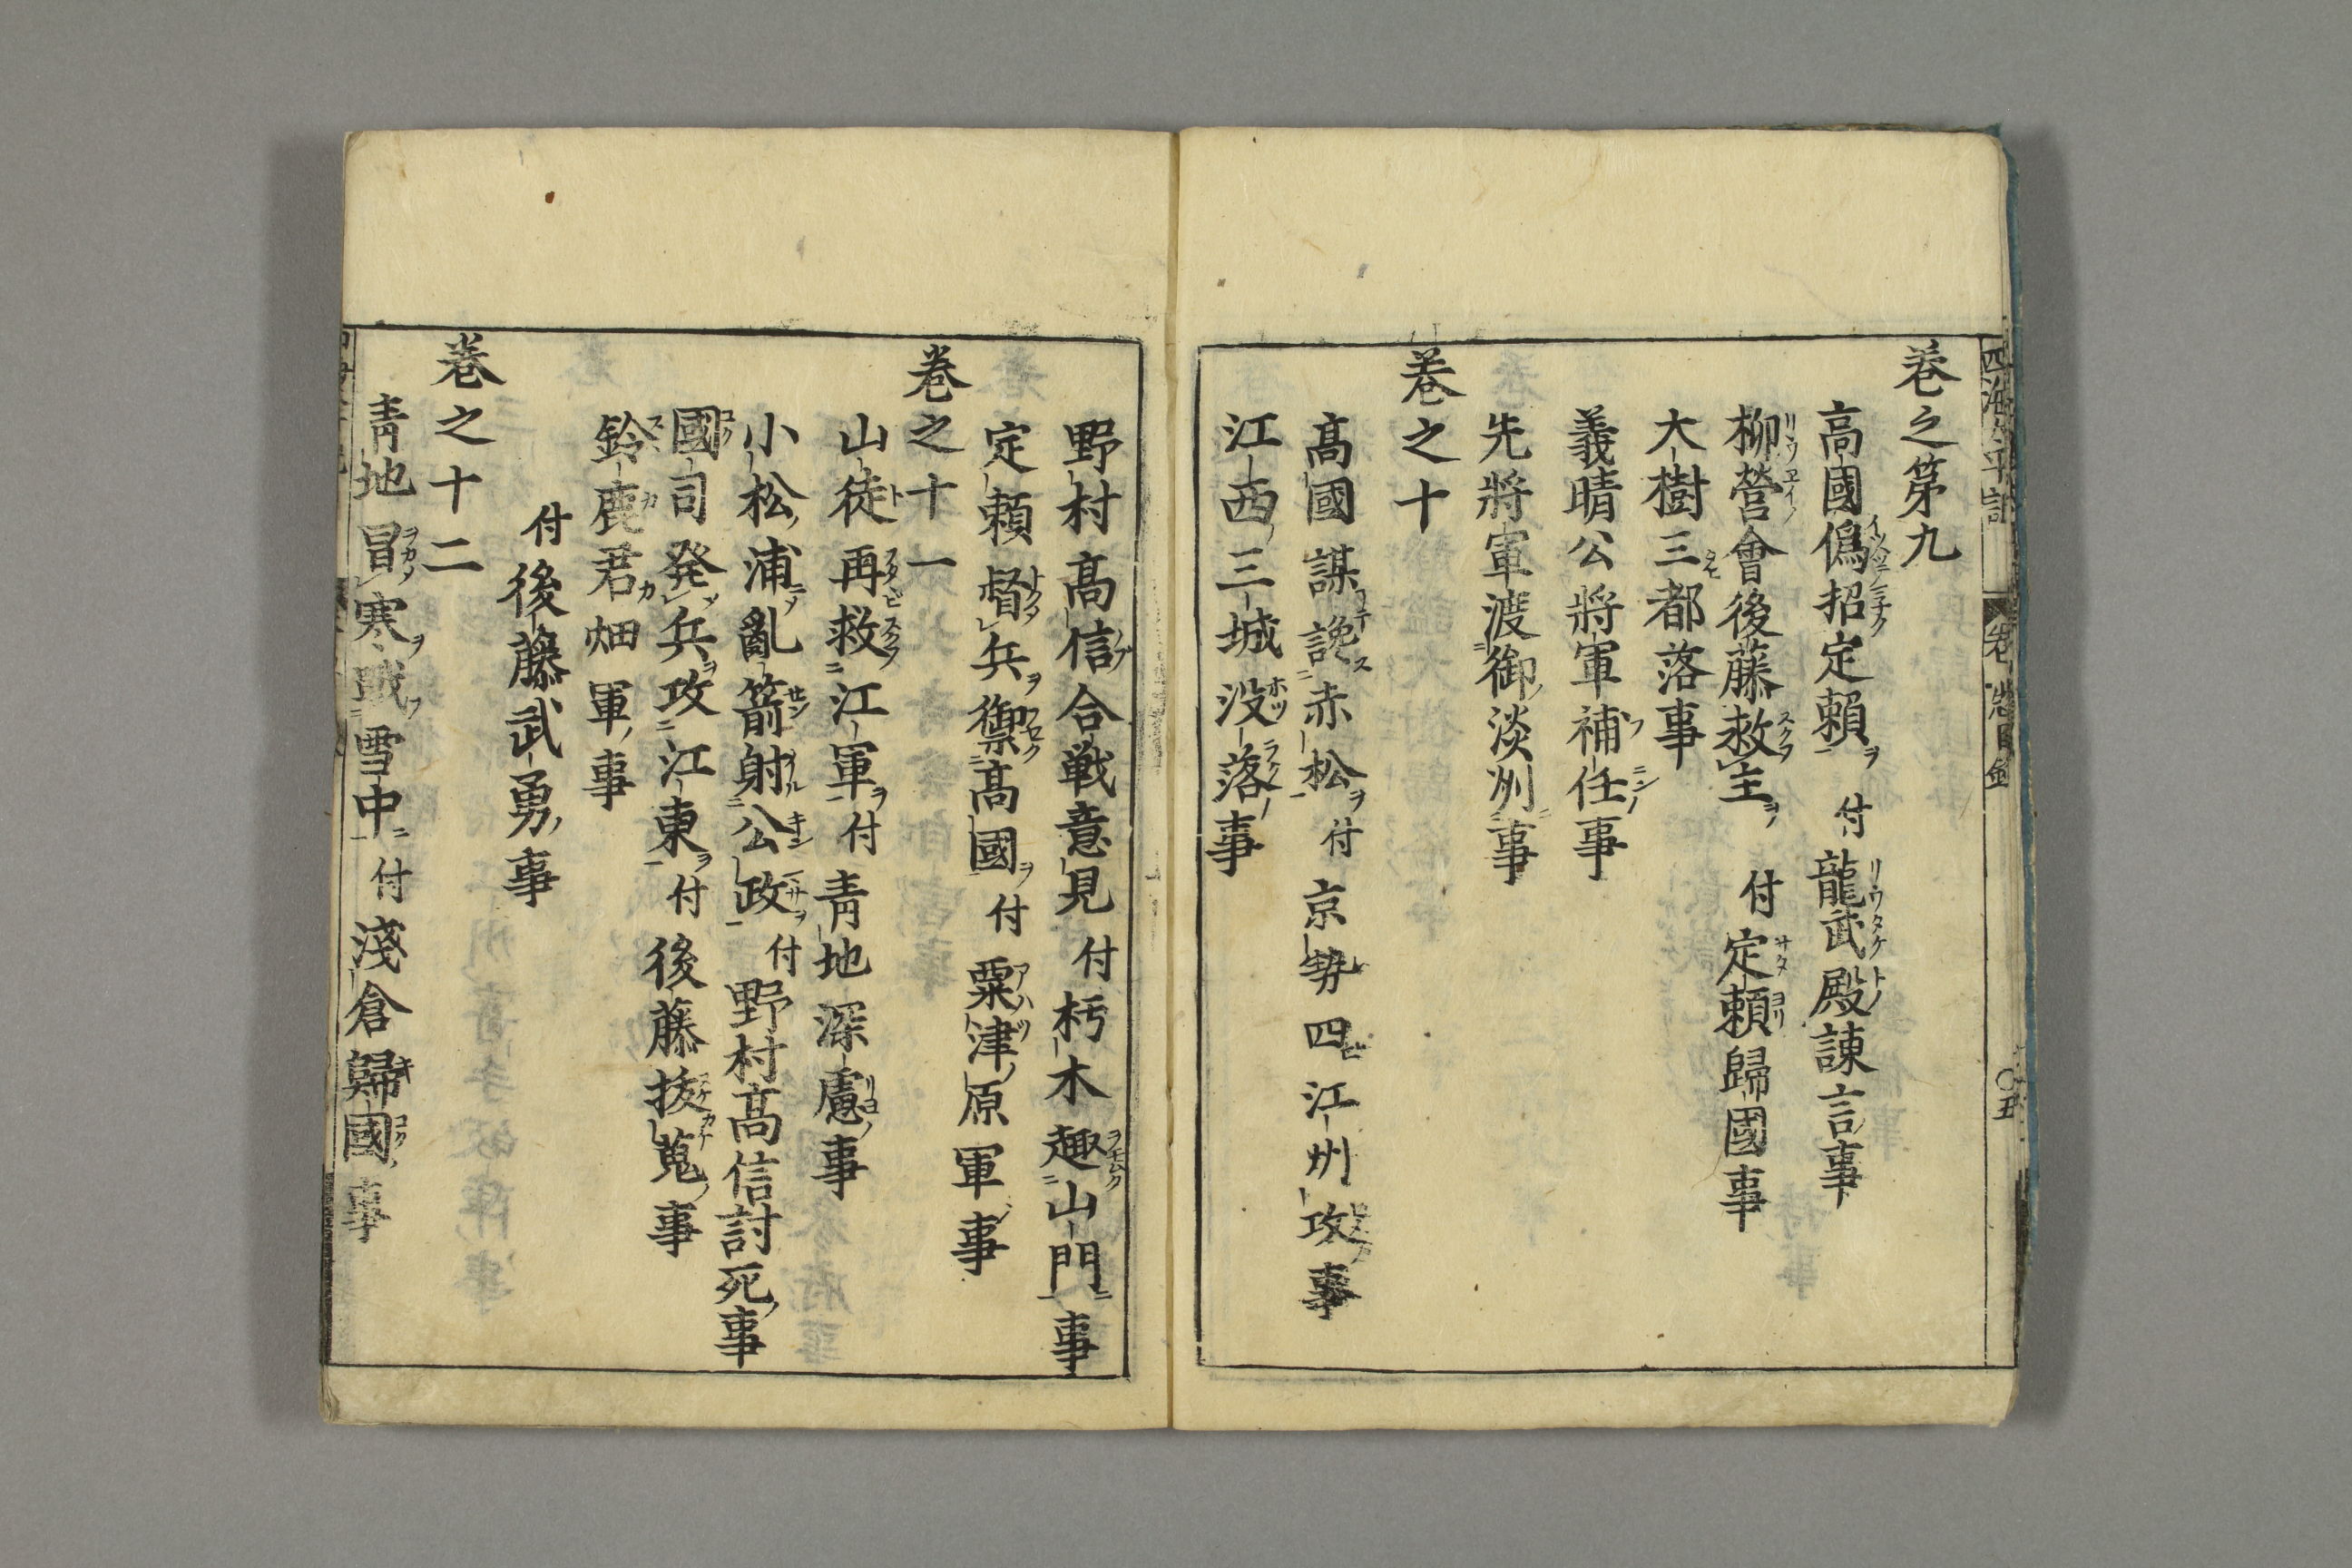 四海太平記 巻 惣目録 〇五
巻之第九
高國僞招定頼 付 龍武殿諌言事
柳營會後藤救主 付 定頼歸國事
大樹三都落事
義晴公將軍補任事
先將軍渡御淡州事
巻之十
髙國謀讒赤松 付 京勢四江州攻事
江西三城没落事
野村髙信合戦意見 付 朽木趣山門事
定頼督兵禦髙國 付 粟津原軍事
巻之十一
山徒再救江軍 付 青地深慮事
小松浦亂箭射公政 付 野村髙信討死事
國司発兵攻江東 付 後藤抜蒐事
鈴鹿君畑軍事
付 後藤武勇事
巻之十二
青地冒寒戰雪中 付 淺倉歸國事